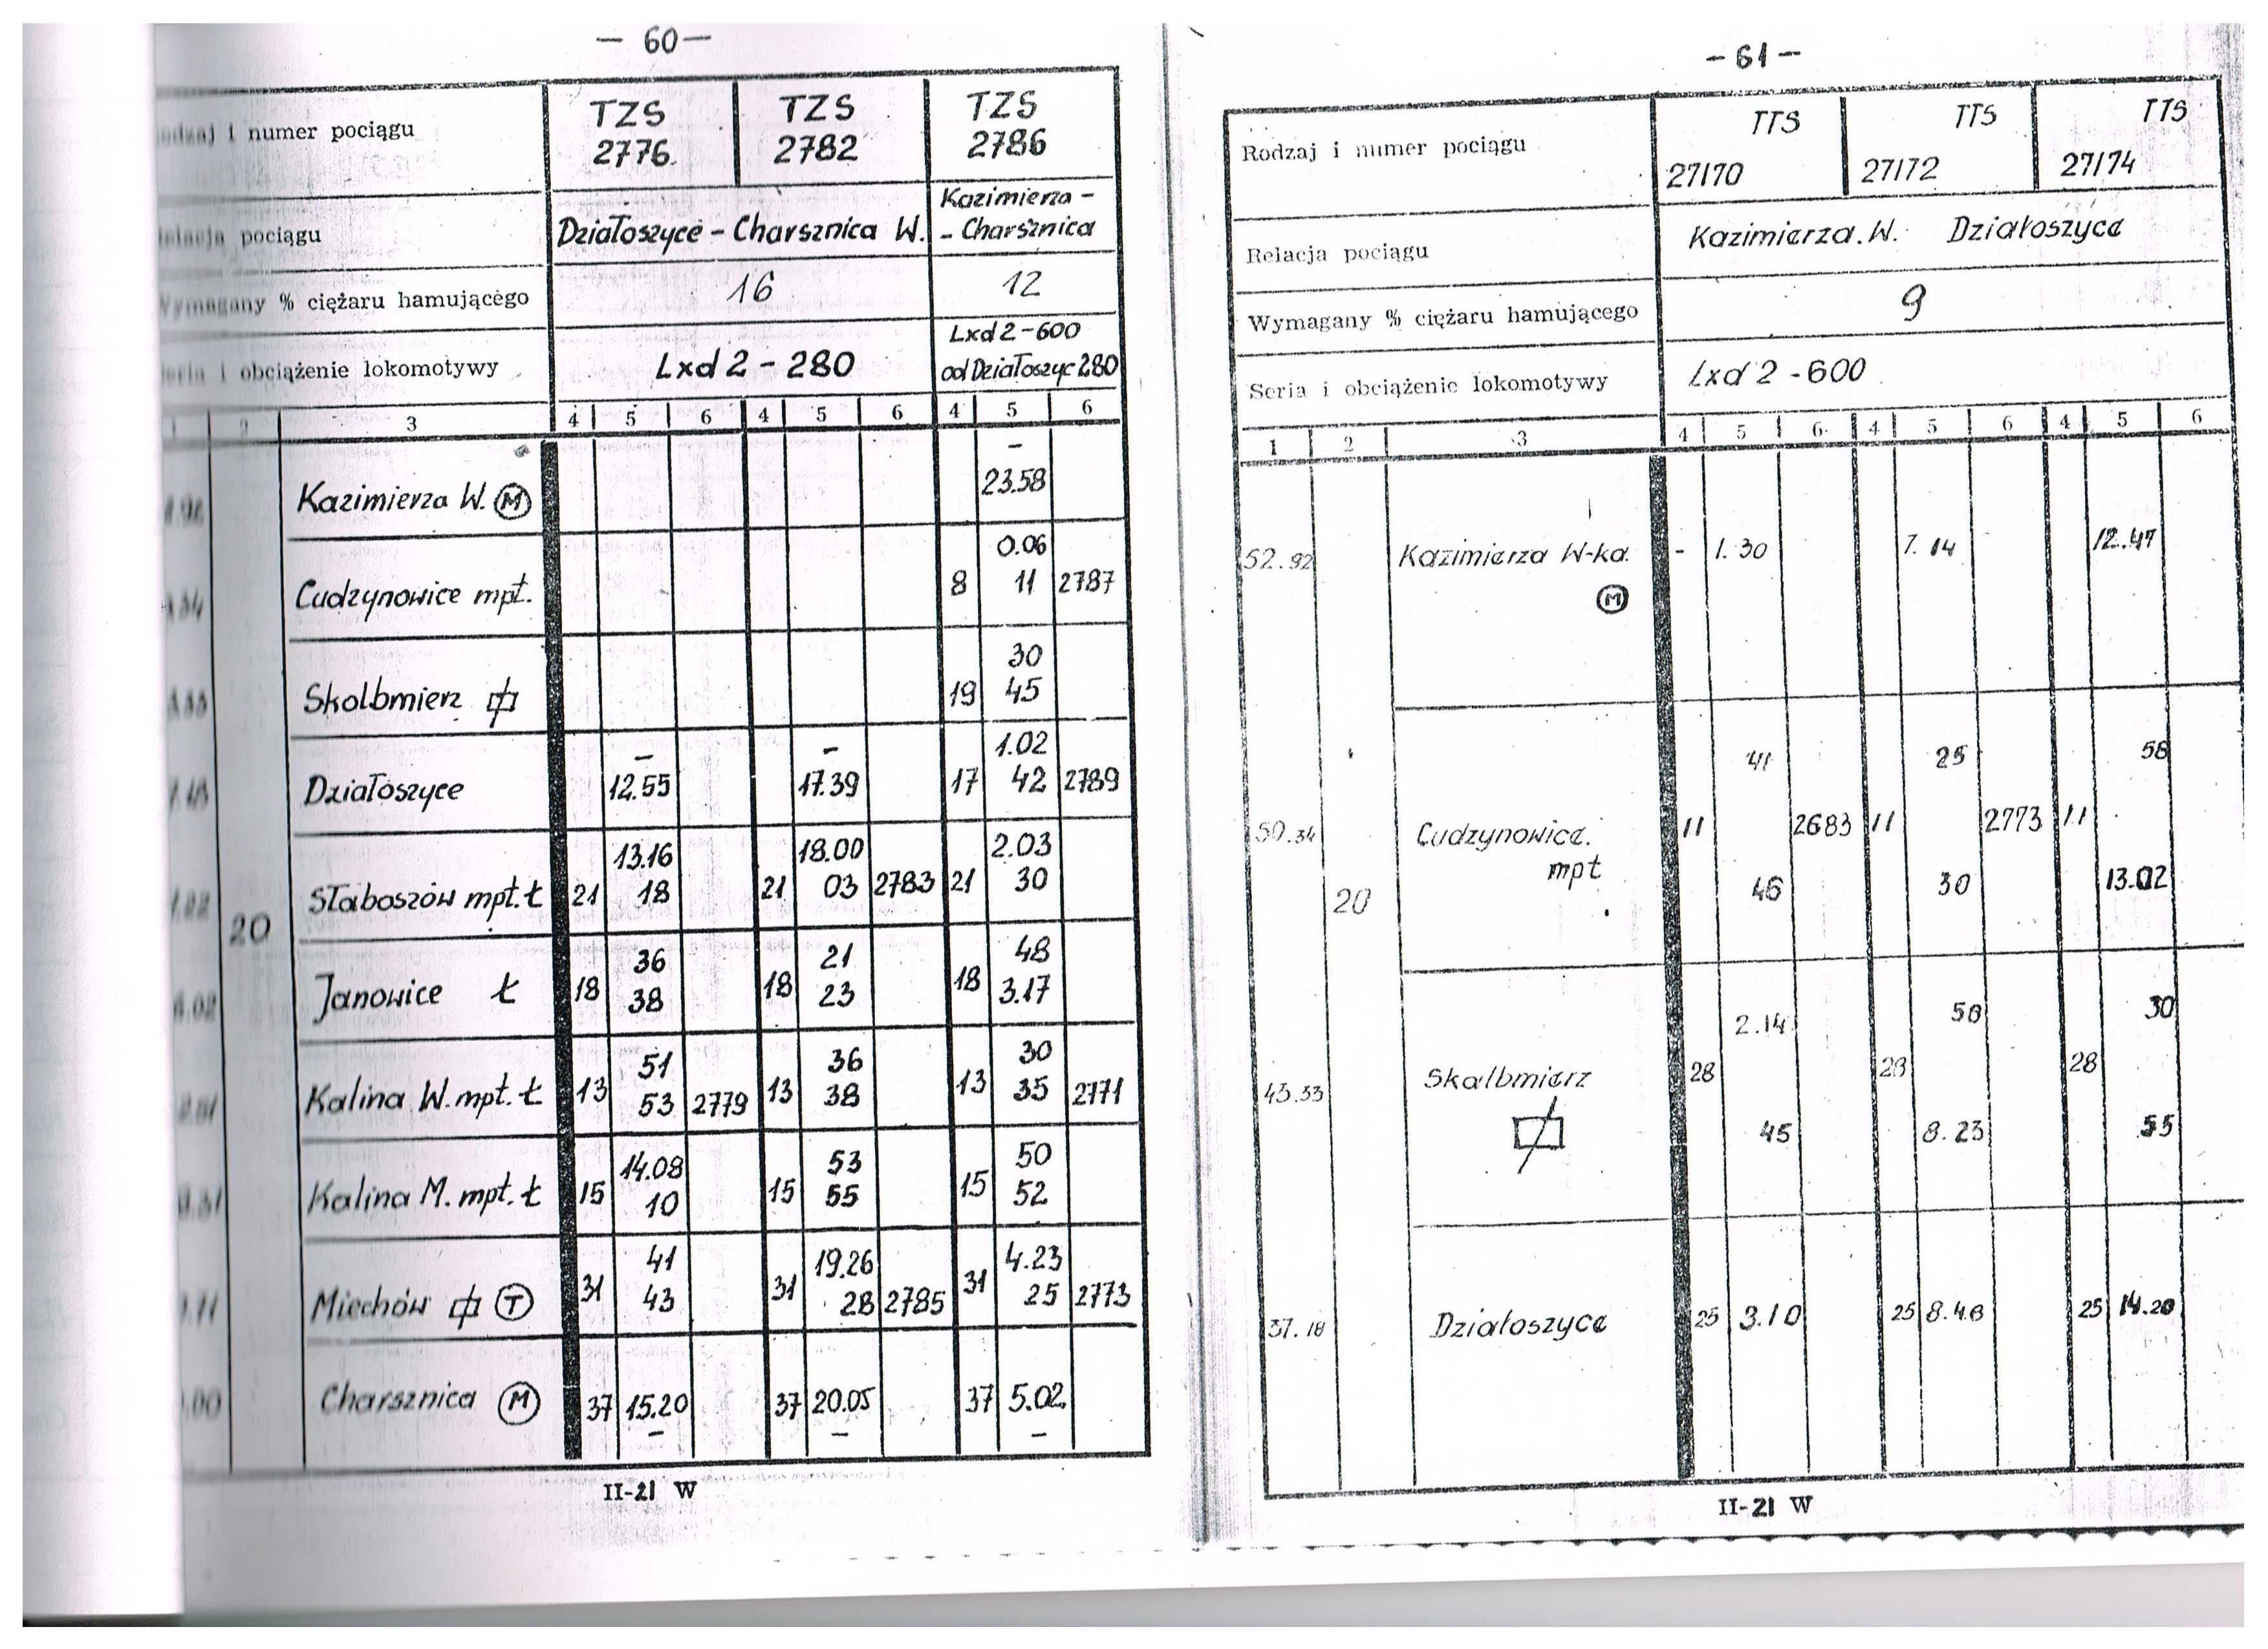 — 60 —
i numer pociągu
TZS 2776 TZS 2782 TZS 2786
pociągu
Działoszyce - Charsznica W. Kazimierza - - Charsznica
% ciężaru hamującego
16 12
i obciążenie lokomotywy
Lxd 2 - 280 Lxd 2 - 600 od Działoszyc 280
3 4 5 6 4 5 6 4 5 6
Kazimierza W. (M) – 23.58
Cudzynowice mpt. 8 0.06 11 2787
Skolbmierz 19 30 45
Działoszyce – 12.55 – 17.39 17 1.02 42 2789
Słaboszów mpt. ł 21 13.16 18 21 18.00 03 2783 21 2.03 30
20
Janowice ł 18 36 38 18 21 23 18 48 3.17
Kalina W. mpt. ł 13 51 53 2779 13 36 38 13 30 35 2771
Kalina M. mpt. ł 15 14.08 10 15 53 55 15 50 52
Miechów (T) 31 41 43 31 19.26 28 2785 31 4.23 25 2773
Charsznica (M) 37 15.20 – 37 20.05 – 37 5.02 –
II-21 W
— 61 —
Rodzaj i numer pociągu
TTS 27170 TTS 27172 TTS 27174
Relacja pociągu
Kazimierza. W. Działoszyce
Wymagany % ciężaru hamującego
9
Seria i obciążenie lokomotywy
Lxd 2 - 600
1 2 3 4 5 6 4 5 6 4 5 6
52.92 Kazimierza W-ka. (M) - 1.30 7.14 12.47
50.34 Cudzynowice. mpt 11 41 46 2683 11 25 30 2773 11 58 13.02
20
43.33 Skalbmierz 28 2.14 45 28 58 8.23 28 30 55
37.18 Działoszyce 25 3.10 25 8.48 25 14.20
II-21 W